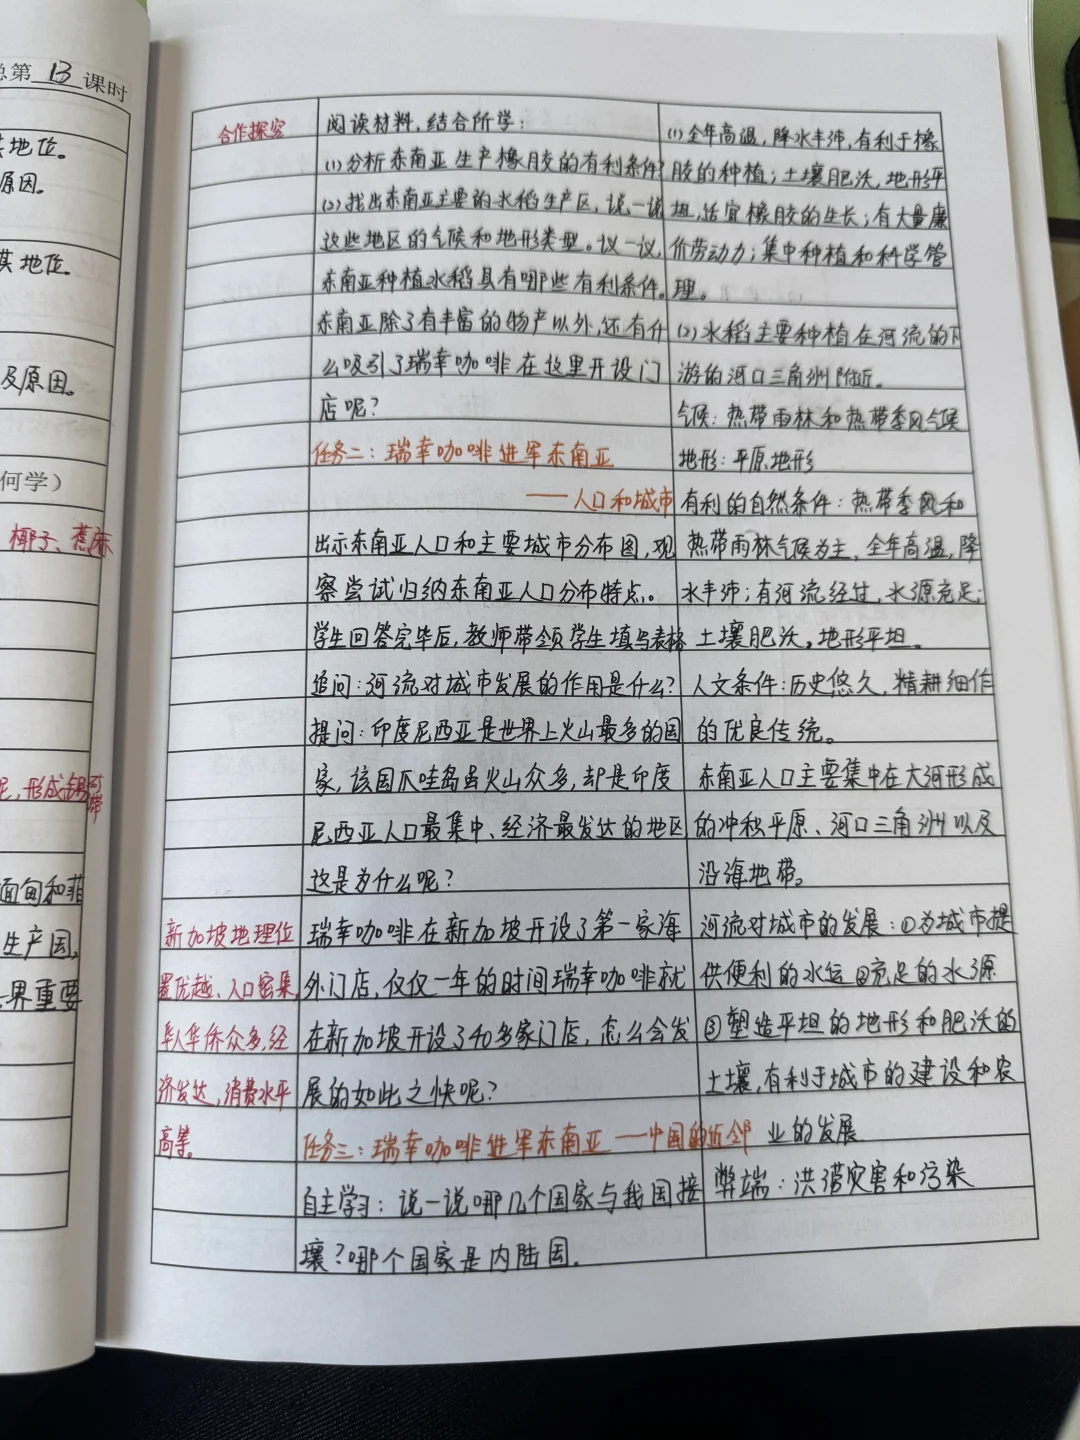 总第 13 课时
其地位。
原因。
其地位。
及原因。
何学）
椰子、蕉麻
形成锡矿带
缅甸和菲
生产国,
世界重要
合作探究
阅读材料,结合所学:
(1)分析东南亚生产橡胶的有利条件?
(2)找出东南亚主要的水稻生产区,说一说
这些地区的气候和地形类型。议一议,
东南亚种植水稻具有哪些有利条件。
东南亚除了有丰富的物产以外,还有什
么吸引了瑞幸咖啡在这里开设门
店呢?
任务二:瑞幸咖啡进军东南亚
——人口和城市
出示东南亚人口和主要城市分布图,观
察尝试归纳东南亚人口分布特点。
学生回答完毕后,教师带领学生填写表格
追问:河流对城市发展的作用是什么?
提问:印度尼西亚是世界上火山最多的国
家,该国爪哇岛虽火山众多,却是印度
尼西亚人口最集中、经济最发达的地区
这是为什么呢?
新加坡地理位
置优越、人口密集,
华人华侨众多,经
济发达,消费水平
高等。
瑞幸咖啡在新加坡开设了第一家海
外门店,仅仅一年的时间瑞幸咖啡就
在新加坡开设了40多家门店,怎么会发
展的如此之快呢?
任务三:瑞幸咖啡进军东南亚——中国的近邻
自主学习:说一说哪几个国家与我国接
壤?哪个国家是内陆国.
(1)全年高温,降水丰沛,有利于橡
胶的种植;土壤肥沃,地形平
坦,适宜橡胶的生长;有大量廉
价劳动力;集中种植和科学管
理。
(2)水稻主要种植在河流的下
游的河口三角洲附近。
气候:热带雨林和热带季风气候
地形:平原地形
有利的自然条件:热带季风和
热带雨林气候为主,全年高温,降
水丰沛;有河流经过,水源充足;
土壤肥沃。地形平坦。
人文条件:历史悠久,精耕细作
的优良传统。
东南亚人口主要集中在大河形成
的冲积平原、河口三角洲以及
沿海地带。
河流对城市的发展:①为城市提
供便利的水运②充足的水源
③塑造平坦的地形和肥沃的
土壤,有利于城市的建设和农
业的发展
弊端:洪涝灾害和污染